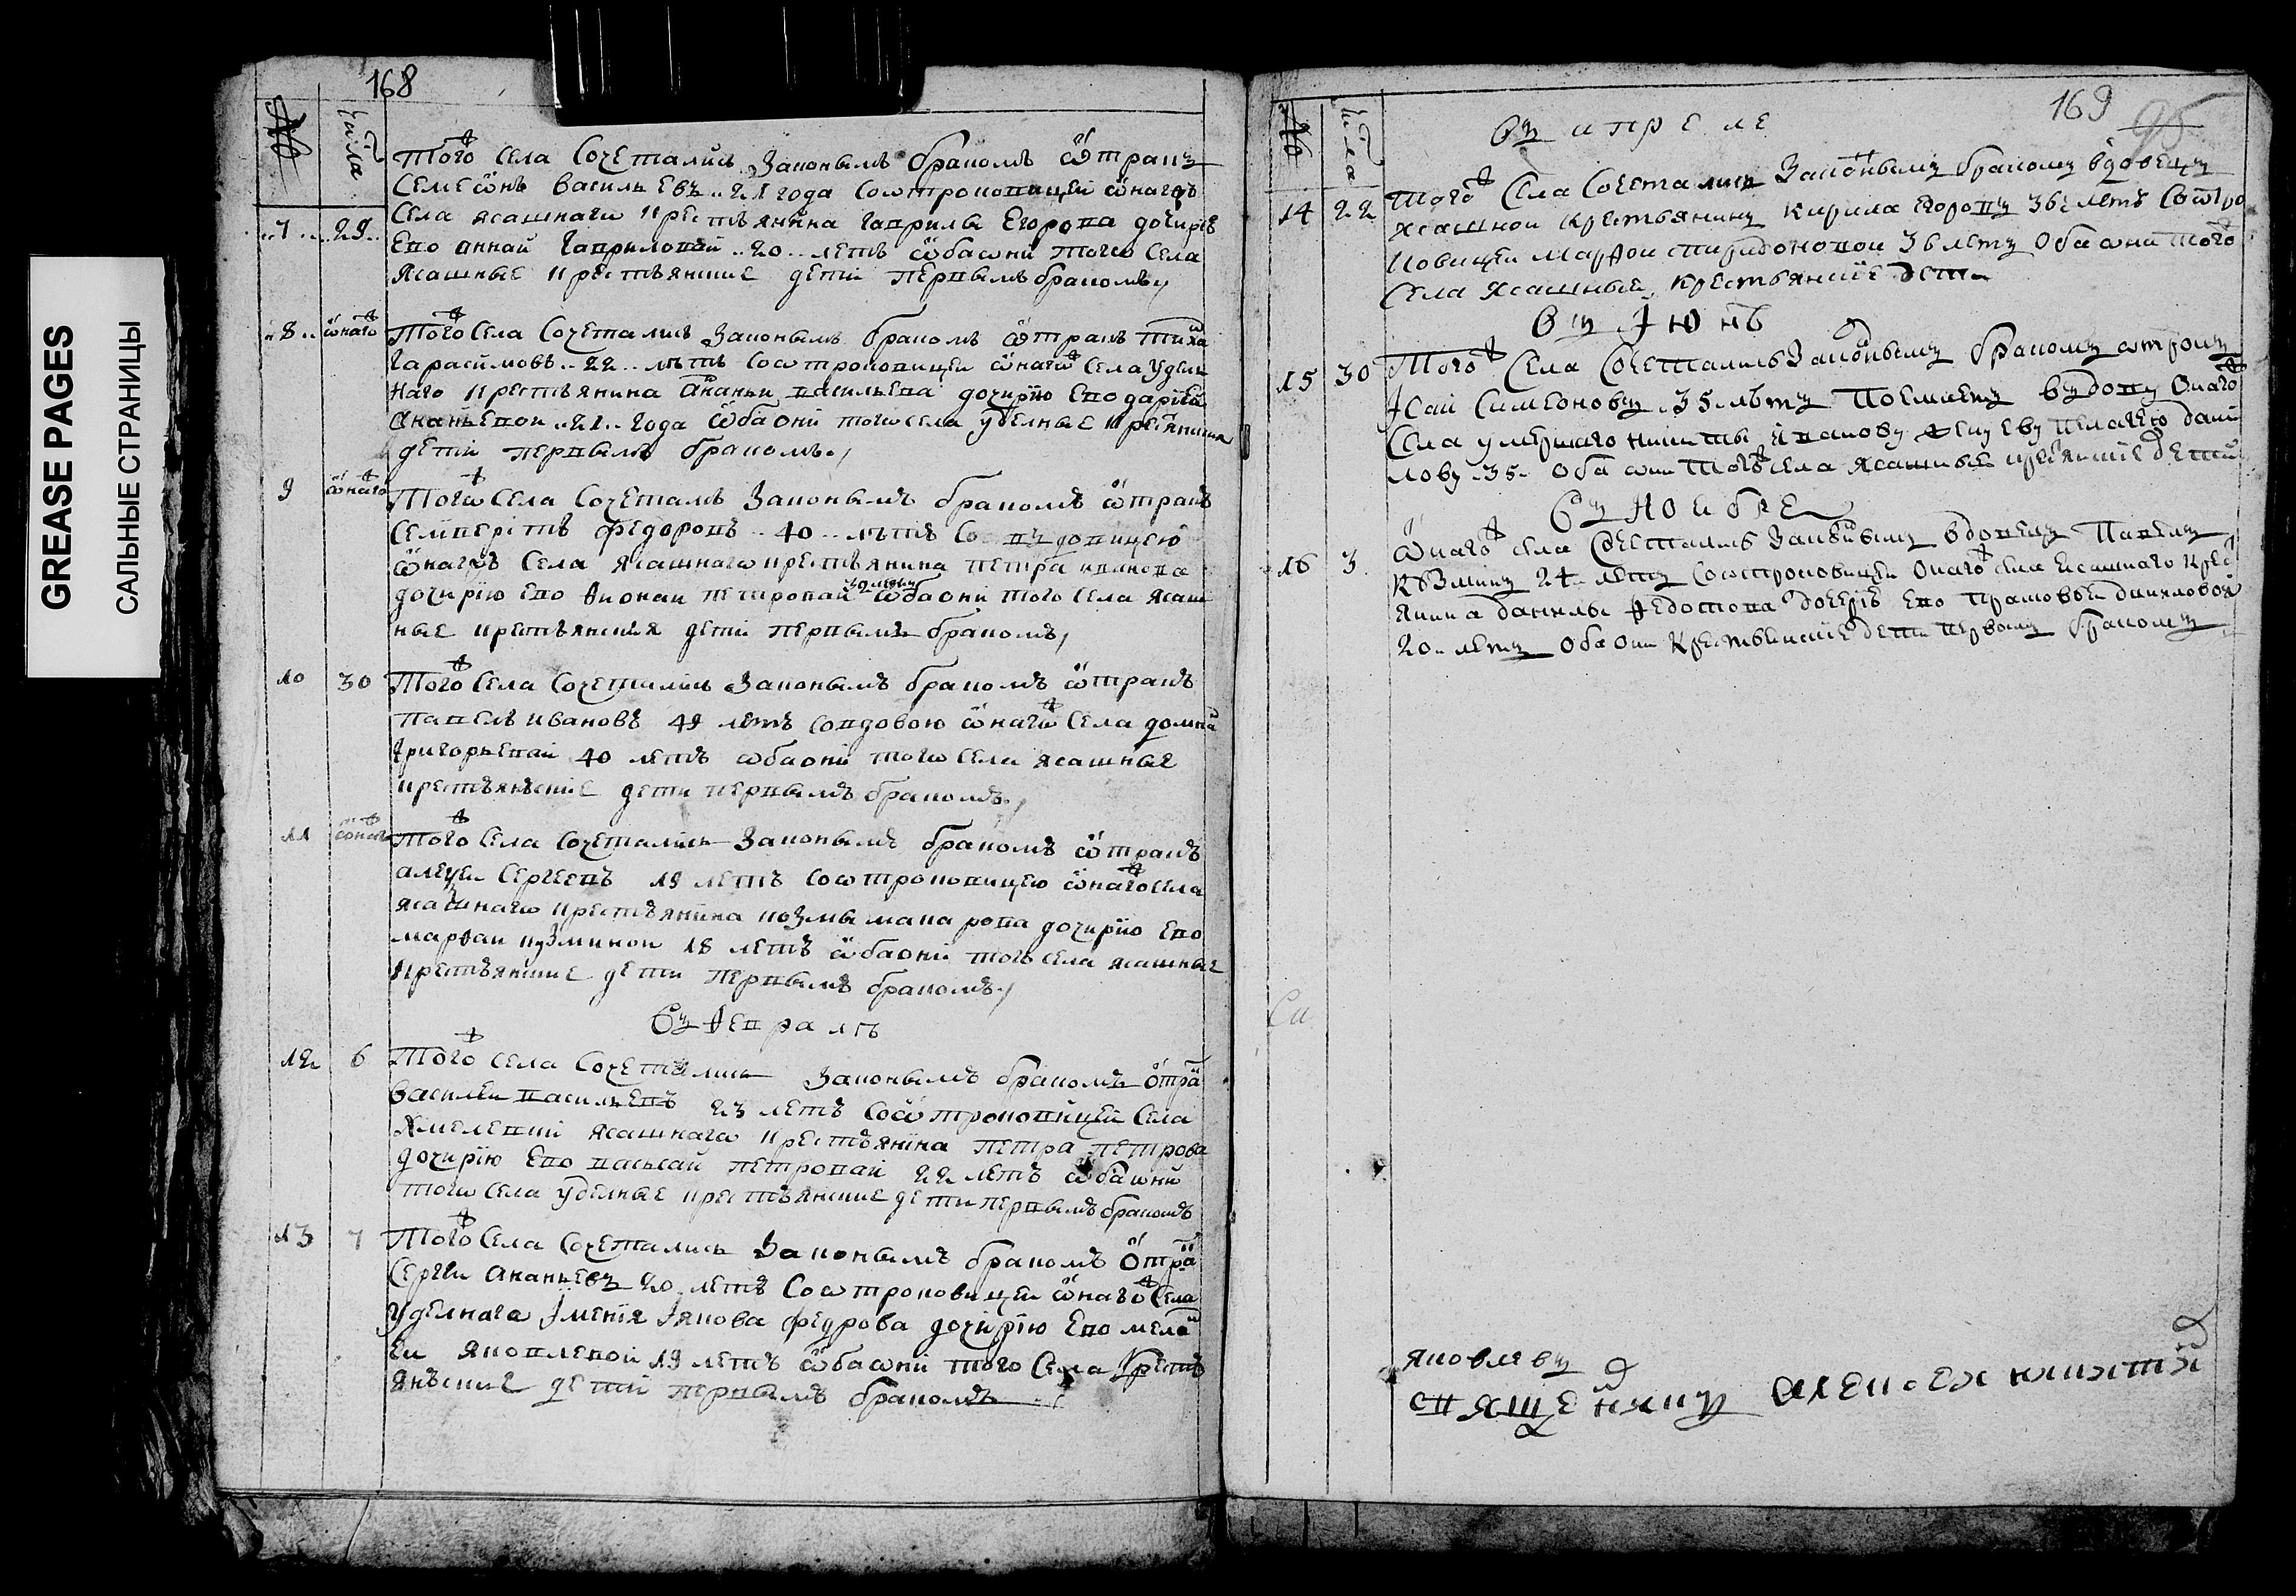 GREASE PAGES
САЛЬНЫЕ СТРАНИЦЫ
168
№ числа
Того Села Сочетались Законымъ бракомъ ѿтракъ
Семеѡнъ Васильевъ 21 года Соѡтроковицей ѡнагѡ
7 29 Села ясашнагѡ крестьянина Гаврилы Егорова дочирiѣ
Ево Аннай Гавриловай 20 летъ ѡбаѡни тогѡ Села
Ясашные крестьянские дети первымъ бракомъ
8 ѡнаго Того Села Сочетались Законымъ бракомъ ѿтракъ Тихѡ
Гарасимовъ 22 лѣтъ Соѡтроковицеи ѡнагѡ Села Удель
наго крестьянина Ананьи Васильева дочирïю Ево Дарïей
Ананьевои 21 года ѡбаѡни тогѡ села уделные крестьянския
дети первымъ бракомъ
9 ѡнаго Тогѡ Села Сочеталис Законымъ бракомъ ѿтракъ
Федоровъ 40 лѣтъ Со вдовицею
ѡнагѡ Села Ясашнагѡ крестьянина Петра
дочирïю Ево Петровай 30 летъ ѡбаони того Села Ясаш
ные крестьянския дети первымъ бракомъ
10 30 Того Села Сочеталис Законымъ бракомъ ѿтракъ
Павелъ Ивановъ 49 летъ Совдовою ѡнагѡ Села Домнай
Григорьевай 40 летъ ѡбаони тогѡ Села Ясашные
крестьянские дети первымъ бракомъ
11 ѡнаго Того Села Сочеталис Законымъ бракомъ ѿтракъ
Алеѯеи Сергеевъ 19 летъ Соѡтроковицею ѡнаго села
ясашнагѡ крестьянина Козмы Макарова дочирïю Ево
Марѳаи Кузминои 18 летъ ѡбаони того села ясашные
крестьянские дети первымъ бракомъ
Въ Ѳевралѣ
12 6 Того Села Сочетались Законымъ бракомъ ѿтра
Василеи Васильевъ 23 летъ Соѡтроковицей Села
Хмелевки ясашнагѡ крестьянина Петра Петрова
дочирïю Ево Петровай 22 летъ ѡбаѡни
тогѡ Села уделные крестьянские дети первымъ бракомъ
13 7 Того Села Сочетались Законымъ бракомъ ѿтра
Сергеи Ананьевъ 20 летъ Соѡтроковицеи ѡнагѡ Села
Уделнагѡ Iменiя Iякова Федрова дочирïю Ево
Яковлевои 19 летъ ѡбаѡни того Села крестъ
янъские дети первымъ бракомъ
169
95
№ числа
Въ апреле
14 22 Того Села Сочеталис Законнымъ бракомъ вдовецъ
Ясашнои крестьянинъ Кирила Егоровъ 36 летъ Соѡтро
ковицеи Марѳои Спиридоновои 36 летъ Оба ѡни того
Села Ясашные крестьянскïе дети
Въ Iюнѣ
15 30 Того Села Сочетались Законнымъ бракомъ ѡтрокъ
Iсаи Симеоновъ 35 лѣтъ вдову Онаго
Села умершаго Никиты жену Еву Пелагею Дани
лову 35 Оба ѡни Того Села Ясашные крестьянскïе дети
Въ Ноябре
16 3 Ѡнаго села Сочетались Законнымъ вдовецъ Павелъ
Кузминъ 24 летъ Соѡтроковицеи Онаго села Ясашнаго Крес
янина Данилы Ѳедотова дочерïю Ево Прасковеи Даниловои
20 летъ Оба Они Крестьянскïе дети первымъ бракомъ
Са
Яковлевъ
Священникъ Алеѯеи